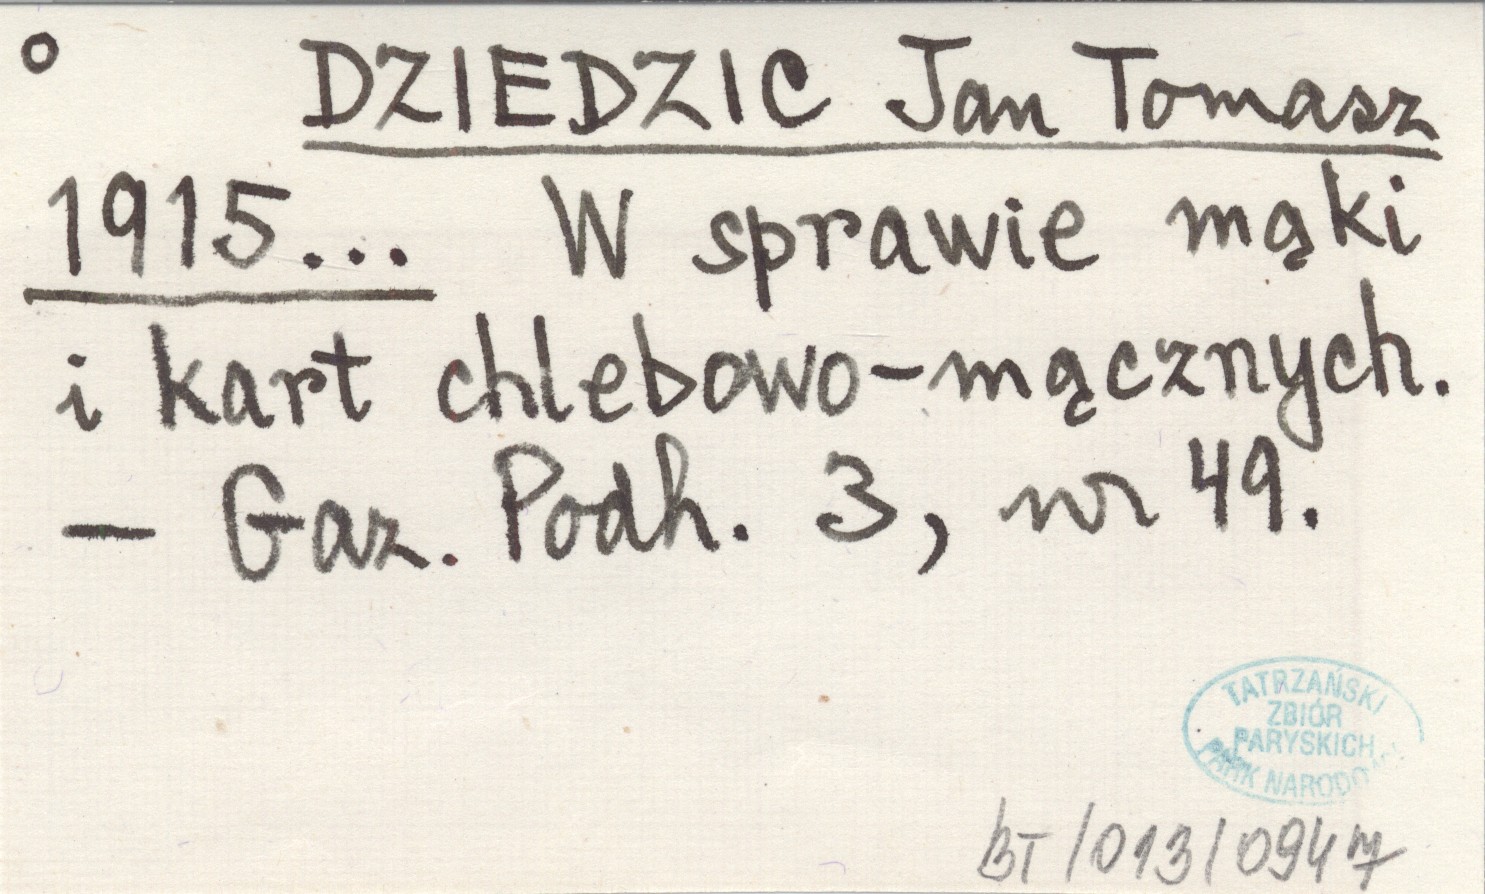 ° DZIEDZIC Jan Tomasz
1915... W sprawie mąki
i kart chlebowo-mącznych.
— Gaz. Podh. 3, nr 49.
TATRZAŃSKI
ZBIÓR
PARYSKICH
PARK NARODOWY
BT/013/0947